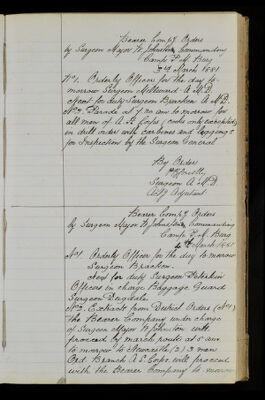 Bearer Comp.y Orders
by Surgeon Major W. Johnston Commanding
Camp P.M. Burg
3rd March 1881
No 1. Orderly Officer for the day to-
morrow Surgeon Millward A.M.D.
next for duty Surgeon Bracken A.M.D.
No 2. Parade at 7 a.m. to morrow for
all men of A.H. Corps, cooks only excepted,
in drill order with carbines and leggings
for Inspection by the Surgeon General
By Order
Surgeon A.M.D.
Act.g Adjutant
Bearer Comp.y Orders
by Surgeon Major W. Johnston, Commanding
Camp P.M. Burg
4th March 1881
No 1 Orderly Officer for the day to morrow
Surgeon Bracken.
Next for duty Surgeon
Officer in charge Baggage Guard
Surgeon Dugdale.
No 2. Extracts from District Orders (No 1)
the Bearer Company under charge
of Surgeon Major W. Johnston will
proceed by march route at 5 am
to morrow to Newcastle (2) 3 men
Ord. Branch A.S. Corps will proceed
with the Bearer Company to morrow